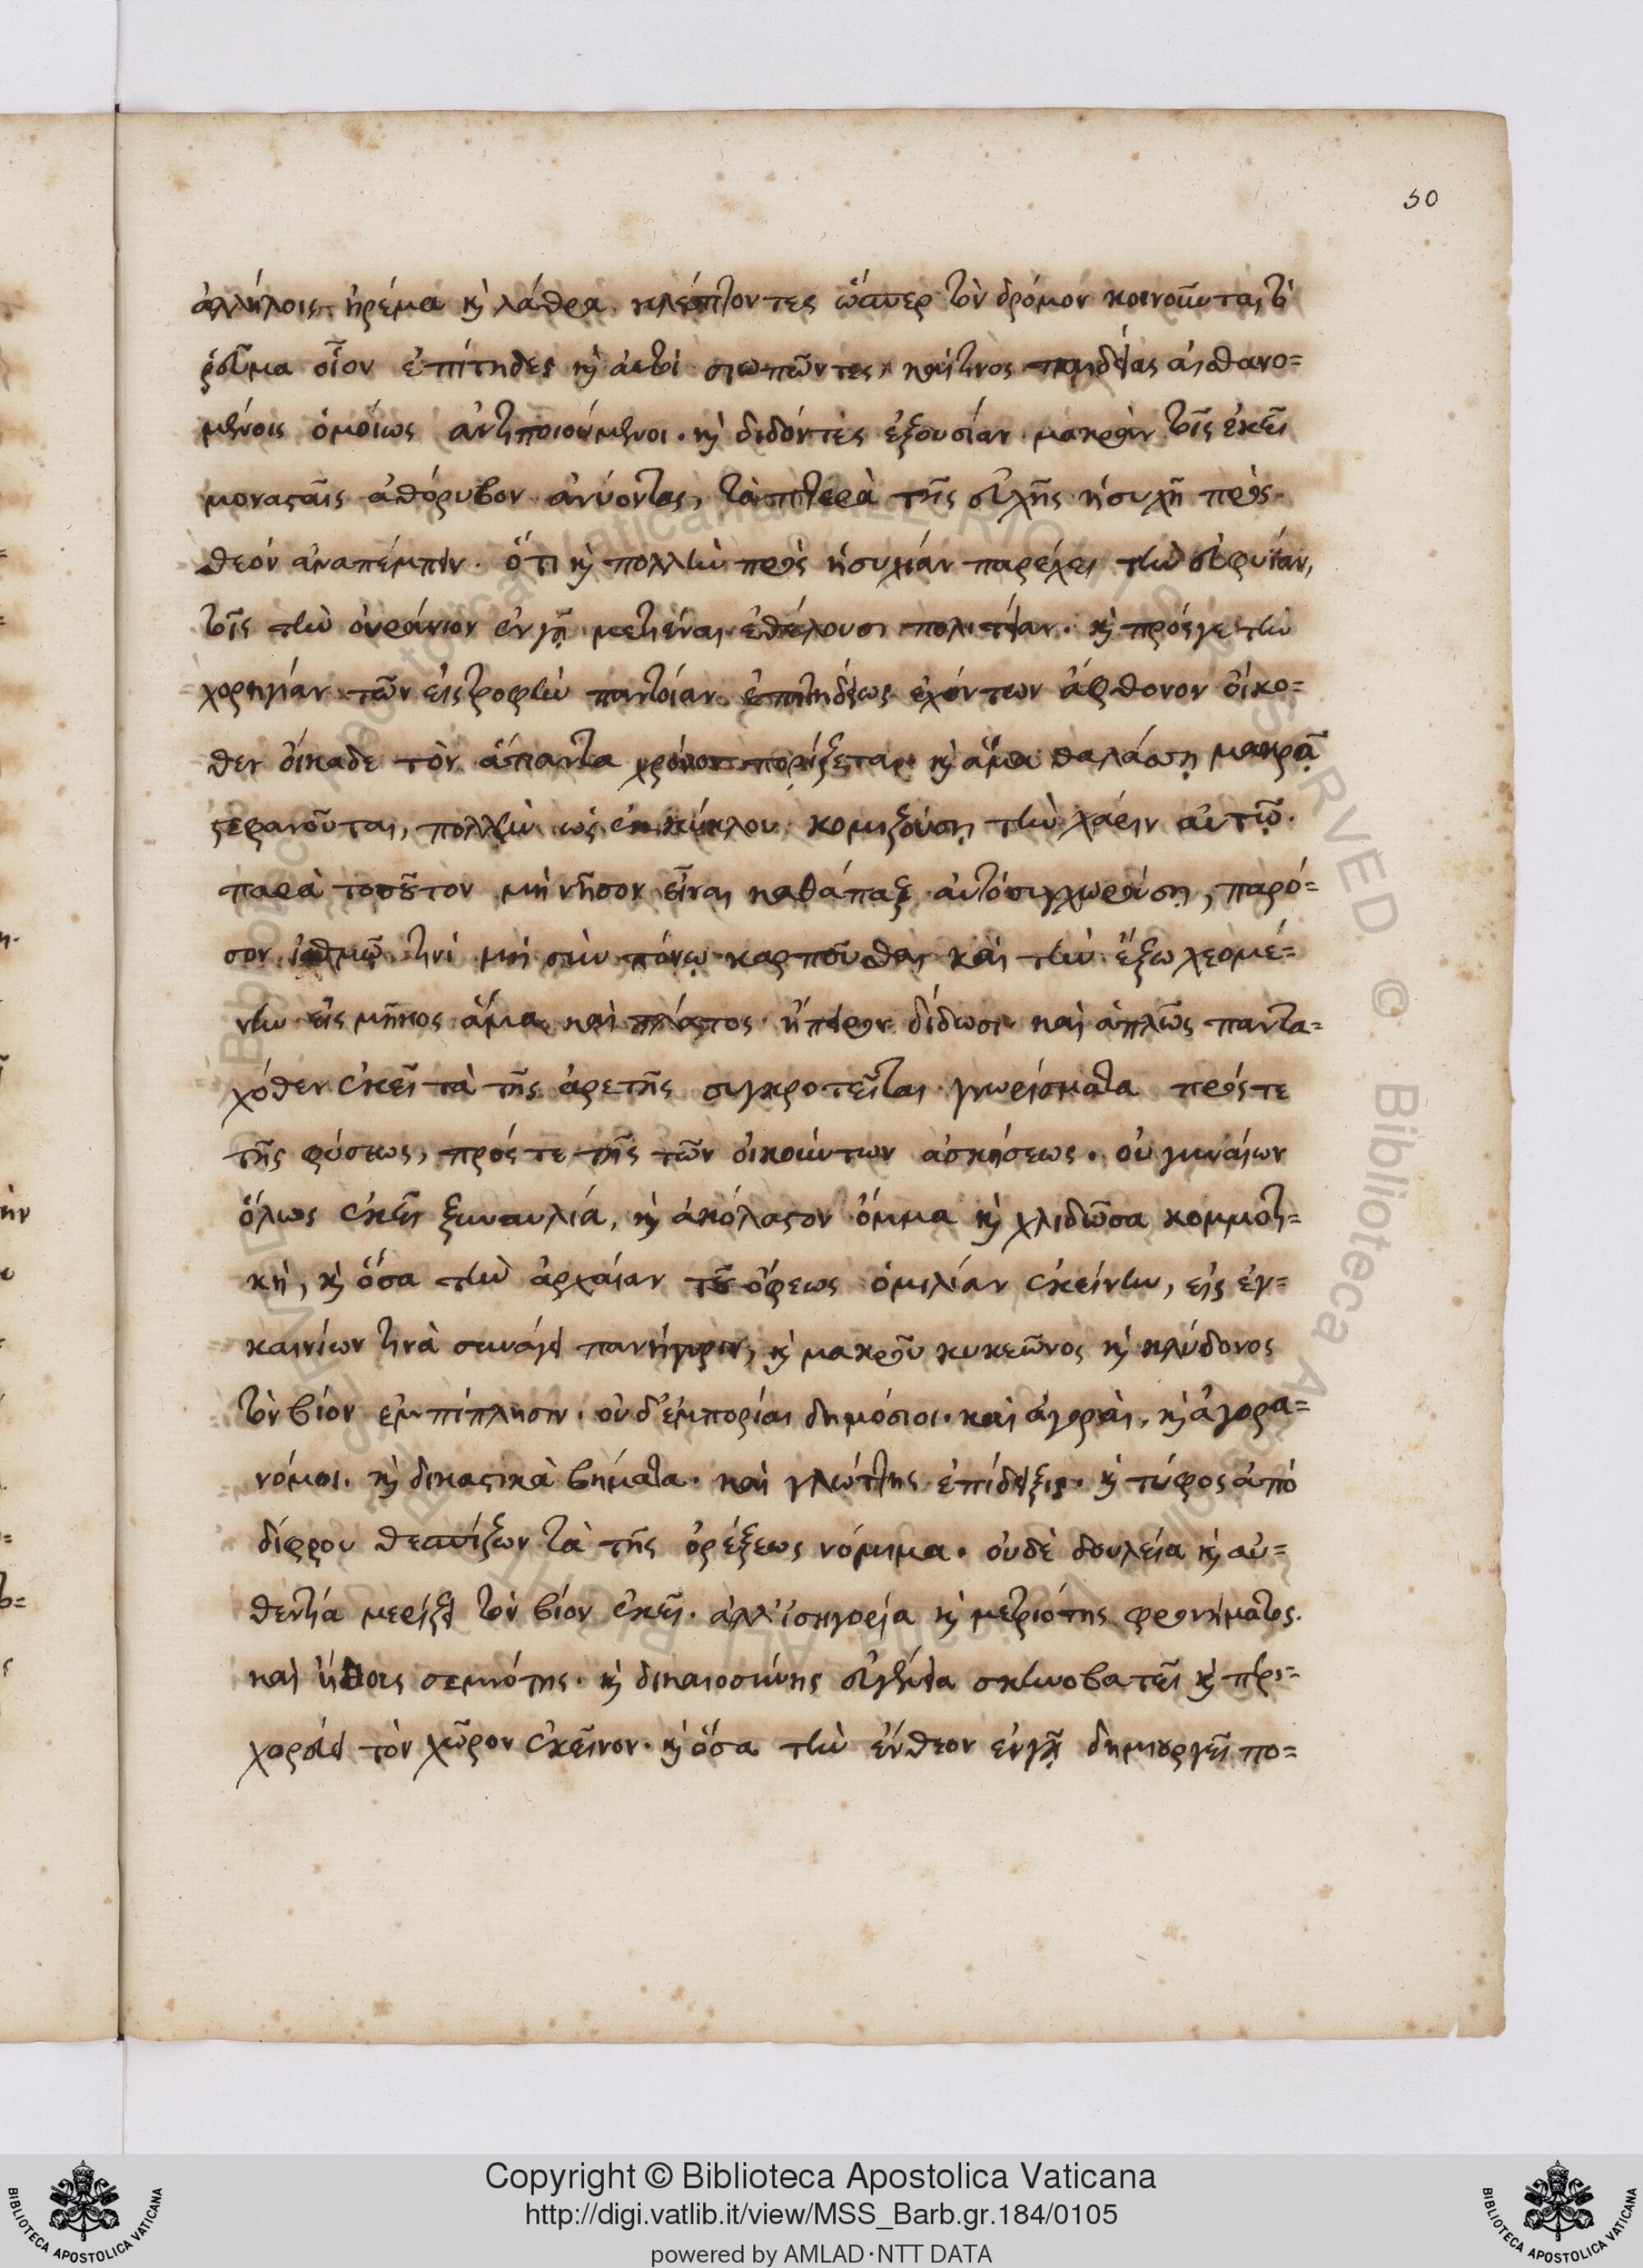 50
ἀλλήλοις ἠρέμα κὴ λάθρα κλέπτοντες ὥσπερ τὸν δρόμον κοινοῦνται τὸ
ῥεῦμα οἷον ἐπίτηδες κὴ ἀυτοὶ σιωπῶντες, καίτινος παιδείας αἰσθανο=
μένοις ὁμοίως ἀντιποιούμενοι. κὴ διδόντες ἐξουσίαν μακρὰν τοῖς ἐκεῖ
μονασταῖς ἀθόρυβον ἀνύοντας, τὰ πτερὰ τῆς εὐχῆς ἡσυχῆ πρὸς
θεὸν ἀναπέμπειν. ὅτι κὴ πολλὴν πρὸς ἡσυχίαν παρέχει τὴν εὐφυΐαν,
τοῖς τὴν οὐράνιον ἐν γῇ μετιέναι ἐθέλουσι πολιτείαν. κὴ πρόςγε τὴν
χορηγίαν τῶν εἰς τροφὴν παντοίαν ἐπιτηδείως ἐχόντων ἄφθονον οἴκο=
θεν οἴκαδε τὸν ἅπαντα χρόνον πορίζεται. κὴ ἅμα θαλάσσῃ μακρᾷ
στεφανοῦται, πολλὴν ὡς ἐκ κύκλου κομιζούσῃ τὴν χάριν αὐτῷ.
παρὰ τοσοῦτον μὴ νῆσον εἶναι καθάπαξ αὐτὸ συγχωρούσῃ, παρό=
σον ἰσθμῷ τινὶ μὴ σὺν πόνῳ καρποῦσθαι καὶ τὴν ἔξω χεομέ=
νην εἰς μῆκος ἅμα καὶ πλάτος ἤπειρον δίδωσι καὶ ἁπλῶς παντα=
χόθεν ἐκεῖ τὰ τῆς ἀρετῆς συγκροτεῖται γνωρίσματα πρός τε
τῆς φύσεως, πρός τε τῆς τῶν οἰκούντων ἀσκήσεως. οὐ γυναίων
ὅλως ἐκεῖ ξυναυλία, κὴ ἀκόλαστον ὄμμα κὴ χλιδῶσα κομμωτι=
κή, κὴ ὅσα τὴν ἀρχαίαν τοῦ ὄφεως ὁμιλίαν ἐκείνην, εἰς ἐγ=
καινίων τινὰ συνάγει πανήγυριν, κὴ μακροῦ κυκεῶνος κὴ κλύδονος
τὸν βίον ἐμπίπλησιν. οὐδ' ἐμπορίαι δημόσιοι. καὶ ἀγοραὶ, κὴ ἀγορα=
νόμοι. κὴ δικαστικὰ βήματα. καὶ γλώττης ἐπίδειξις. κὴ τύφος ἀπὸ
δίφρου θεσπίζων τὰ τῆς ὀρέξεως νόμιμα. οὐδὲ δουλεία κὴ αὐ=
θεντία μερίζει τὸν βίον ἐκεῖ. ἀλλ' ἰσηγορία κὴ μετριότης φρονήματος.
καὶ ἤθους σεμνότης. κὴ δικαιοσύνης εὐγένεια σκηνοβατεῖ κὴ περι=
χορεύει τὸν χῶρον ἐκεῖνον. κὴ ὅσα τὴν ἔνθεον ἐν γῇ δημιουργεῖ πο=
Copyright © Biblioteca Apostolica Vaticana
http://digi.vatlib.it/view/MSS_Barb.gr.184/0105
powered by AMLAD·NTT DATA
BIBLIOTECA APOSTOLICA VATICANA
BIBLIOTECA APOSTOLICA VATICANA